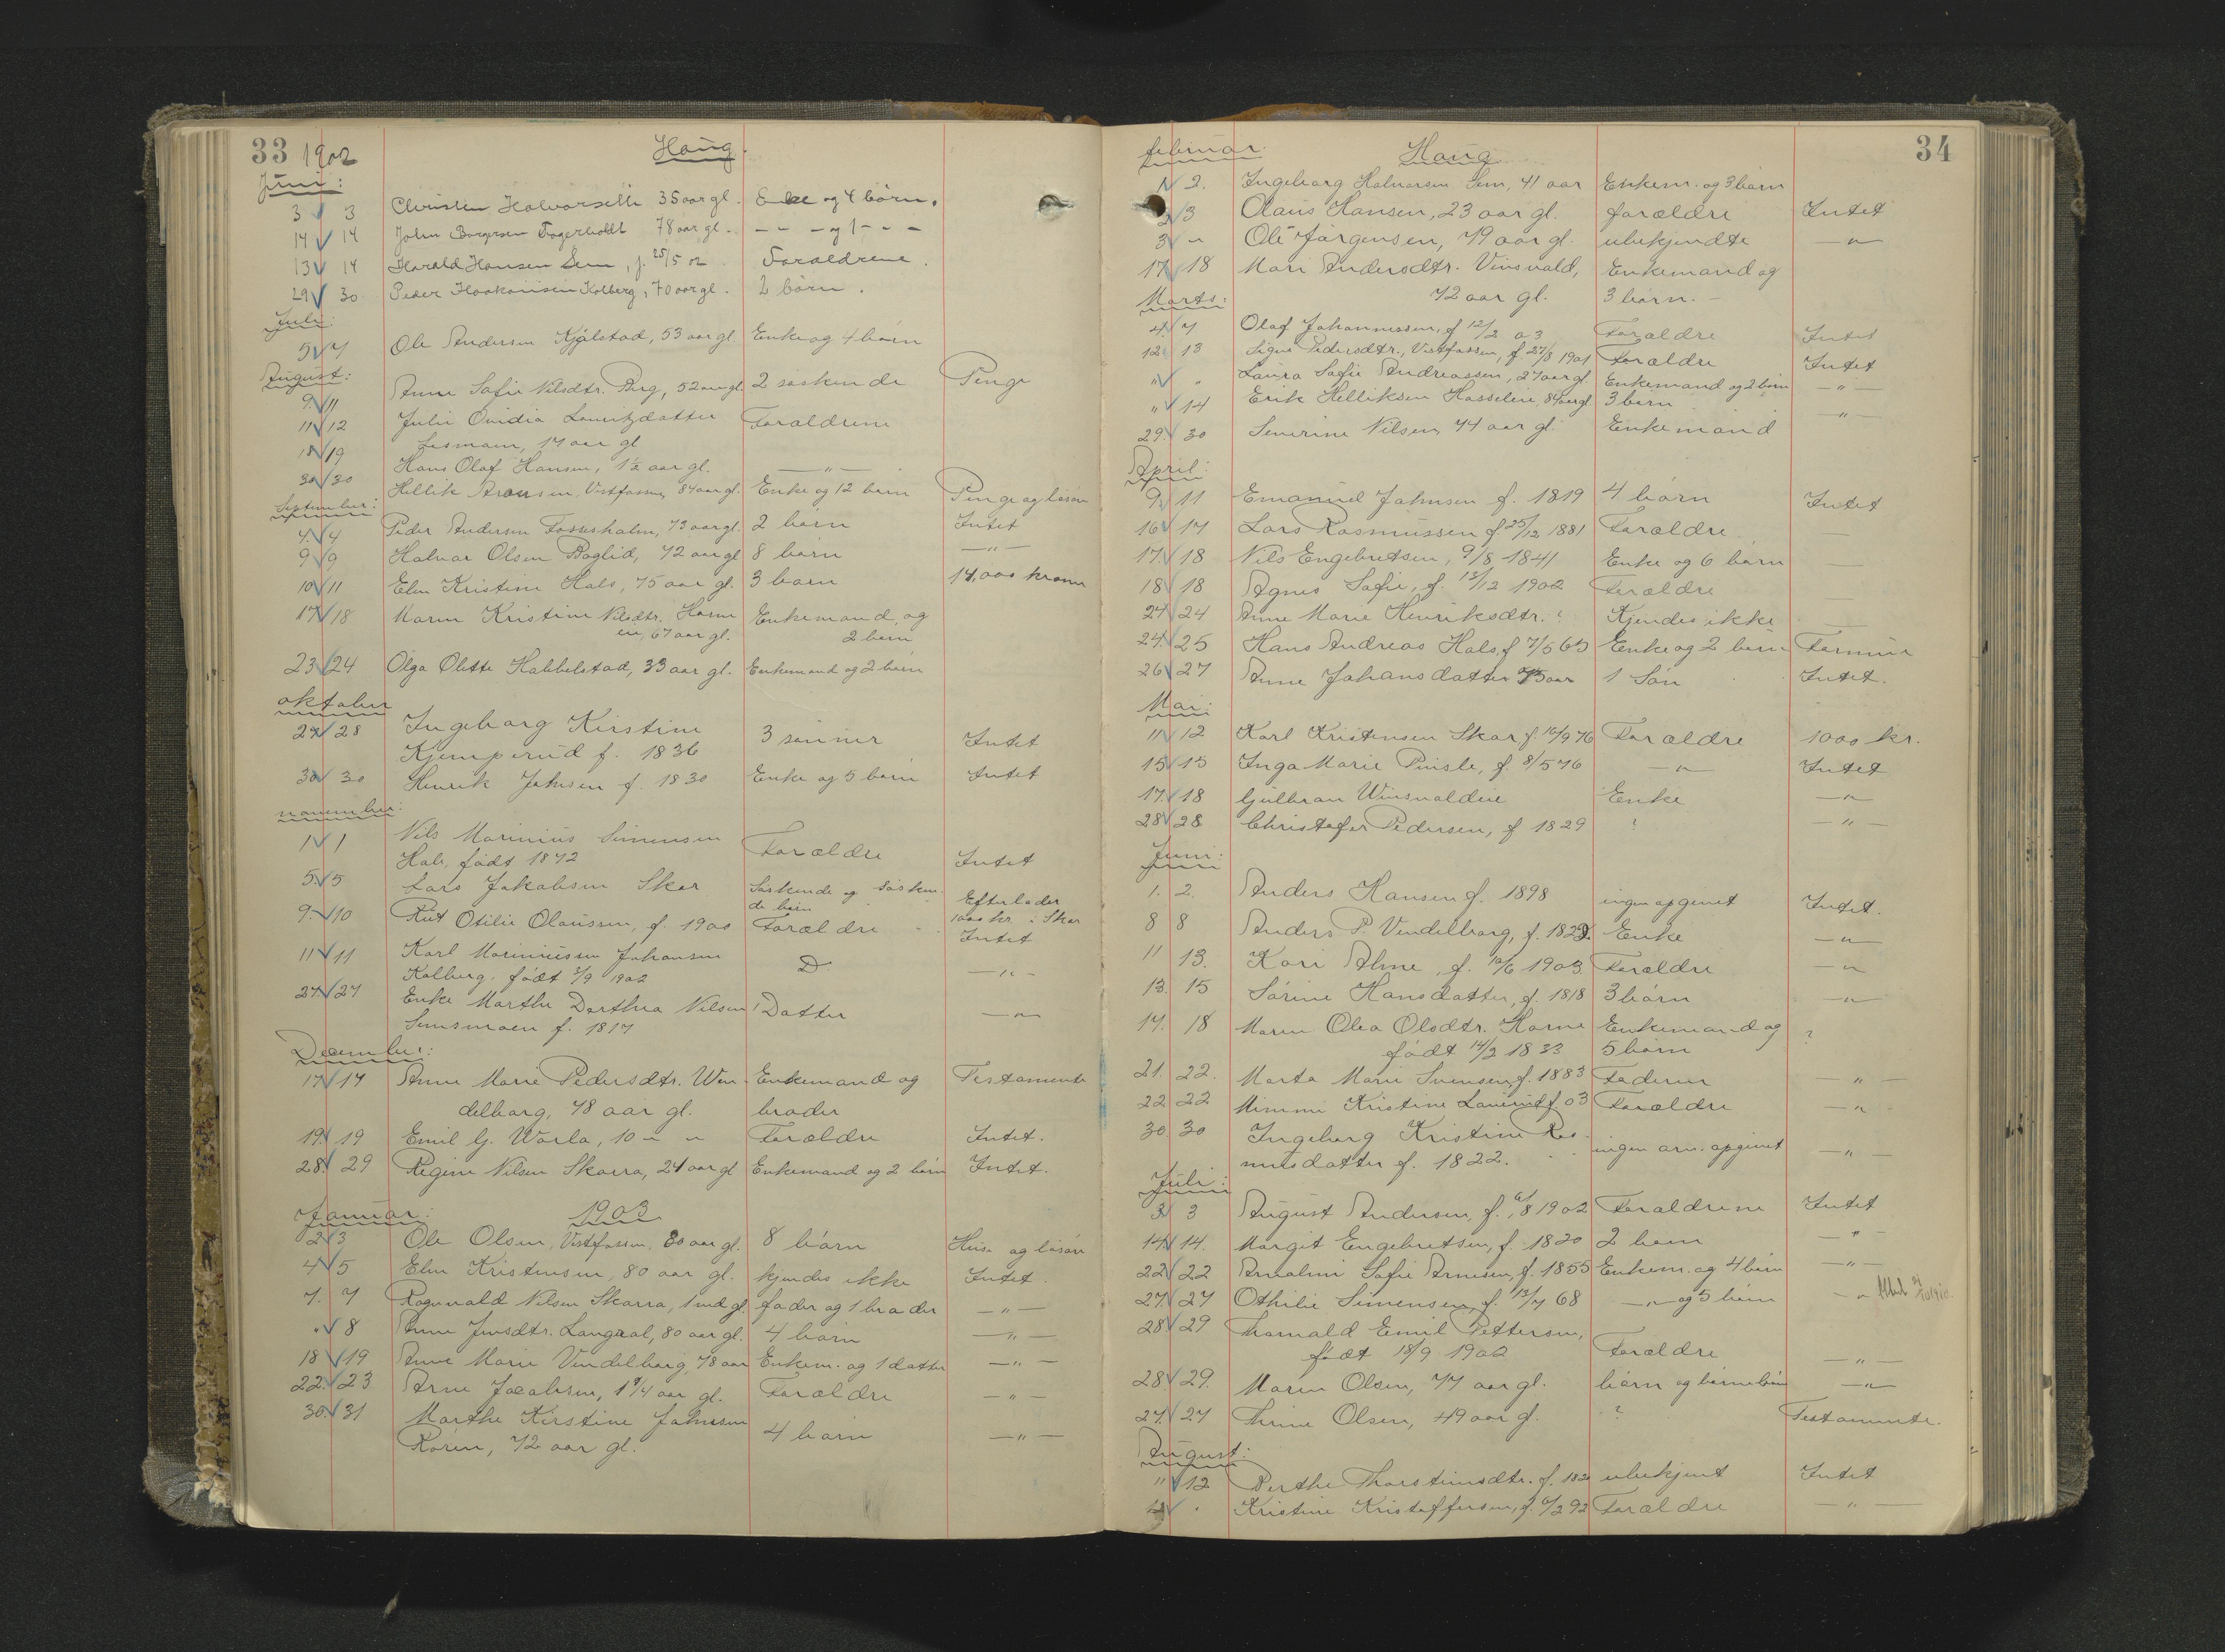 33 1902 Haug.
Juni:
3 3 Christen Halvorselle 35 aar gl. Enke og 4 børn.
14 14 John Borgersen Fagerholdt 78 aar gl. - - - og 1 - - -
13 14 Harald Hansen Sem, f. 25/5 02 Forældrene.
29 30 Peder Haakonsen Kolberg, 70 aar gl. 2 børn.
Juli:
5 7 Ole Andersen Kjølstad, 53 aar gl. Enke og 4 børn
August:
9. 11 Anne Sofie Nilsdtr. Berg, 52 aar gl. 2 søskende Penge
11 12 Julie Ovidia Lauritzdatter Forældrene
Lesmann, 17 aar gl
18 19 Hans Olaf Hansen, 1½ aar gl. — " —
30 30 Hellik Aronsen, Vestfossen, 84 aar gl. Enke og 12 børn Penge og løsøre
September:
4. 4 Peder Andersen Fossesholm, 73 aar gl. 2 børn Intet
9 9 Halvor Olsen Røglid, 72 aar gl 8 børn — " —
10 11 Elen Kristine Hals, 75 aar gl. 3 børn 14,000 kroner
17 18 Maren Kristine Nilsdtr. Horne Enkemand, og
eie, 67 aar gl. 2 børn
23 24 Olga Olette Hobbelstad, 33 aar gl. Enkemand og 2 børn
oktober
27 28 Ingeborg Kirstine 3 sønner Intet
Kjemperud f. 1836
30 30 Henrik Johnsen f. 1830 Enke og 5 børn Intet
november:
1 1 Nils Marinius Simensen Forældre Intet
Hals, født 1872
5. 5 Lars Jakobsen Skar Søskende og søsken- Efterlader
de børn 1000 kr. i Skar
9. 10 Rut Otilie Olaussen, f. 1900 Forældre Intet
11 11 Karl Mariniussen Johansen D. — " —
Kolberg, født 5/9 1902
27. 27 Enke Marthe Dorthea Nilsen 1 Datter — " —
Semsmoen f. 1817
December:
17 17 Anne Marie Pedersdtr. Wen- Enkemand og Testamente
delborg, 78 aar gl. broder
19. 19 Emil G. Warla, 10 " " Forældre Intet.
28. 29 Regine Nilsen Skarra, 24 aar gl Enkemand og 2 børn Intet.
Januar: 1903
2 3 Ole Olsen, Vestfossen, 80 aar gl. 8 børn Huse og løsøre
4 5 Elen Kristensen, 80 aar gl. kjendes ikke Intet.
7. 7 Ragnvald Nilsen Skarra, 1 md gl. fader og 1 broder — " —
" 8 Anne Jensdtr. Langaal, 80 aar gl. 4 børn — " —
18 19 Anne Marie Vendelborg, 78 aar Enkem. og 1 datter — " —
22. 23 Arne Jacobsen, 1 3/4 aar gl. Forældre — " —
30. 31 Marthe Kirstine Johnsen 4 børn — " —
Røren, 72 aar gl.
34
februar. Haug
1 2. Ingeborg Halvorsen Sem, 41 aar Enkem. og 3 børn
2 3 Olaus Hansen, 23 aar gl. forældre Intet
3 " Ole Jørgensen, 79 aar gl. ubekjendte — " —
17 18 Mari Andersdtr. Vinsvold, Enkemand og
72 aar gl. 3 børn. —
Marts:
4. 7 Olaf Johannessen, f 12/2 03 Forældre Intet
12 13 Signe Pedersdtr., Vestfossen, f. 27/8 1901 Forældre Intet
" " Laura Sofie Andreassen, 27 aar gl. Enkemand og 2 børn — " —
" 14 Erik Helliksen Hasseleie, 84 aar gl 3 børn — " —
29. 30 Severine Nilsen, 74 aar gl. Enkemand
April:
9. 11 Emanuel Johnsen f. 1819 4 børn Intet
16 17 Lars Rasmussen f. 25/12 1881 Forældre —
17. 18 Nils Engebretsen, 9/8 1841 Enke og 6 børn —
18 18 Agnes Sofie, f. 13/12 1902 Forældre —
24 24 Anne Marie Henriksdtr. ? Kjendes ikke —
24. 25 Hans Andreas Hals, f 7/5 65 Enke og 2 børn Formue
26 27 Anne Johansdatter 75 aar 1 Søn Intet.
Mai:
11 12 Karl Kristensen Skar f. 16/9 76 Forældre 1000 kr.
15 15 Inga Marie Pinsle, f. 8/5 76 — " — Intet
17. 18 Gulbran Winsvoldeie Enke — " —
28 28 Christofer Pedersen, f 1829 ? — " —
Juni:
1. 2. Anders Hansen f. 1898 ingen opgivet Intet.
8 8 Anders P. Vendelborg, f. 1822. Enke — " —
11 13. Kari Alme, f. 10/6 1903. Forældre — " —
13. 15 Sørine Hansdatter, f. 1818 3 børn — " —
17. 18 Maren Olea Olsdtr. Horne Enkemand og ?
født 14/2 1833 5 børn
21. 22. Marta Marie Svensen, f. 1883 Faderen — " —
22 22 Mimmi Kristine f. 03 Forældre — " —
30. 30 Ingeborg Kristine Ras- ingen arv. opgivet — " —
musdatter f. 1822.
Juli:
3 3 August Andersen, f. 6/8 1902 Forældrene Intet
14. 14. Margit Engebretsen, f. 1820 2 børn — " —
22 22 Sofie Arnesen, f. 1855 Enkem. og 4 børn — " —
27. 27 Othilie Simensen, f. 13/7 68 — " — og 5 børn — "
28 29 Thorvald Emil Pettersen, Forældre — " —
født 18/9 1902
28. 29. Maren Olsen, 77 aar gl. børn og børnebørn — " —
27. 27 Thrine Olsen, 49 aar gl. ? Testamente.
August:
11 12 Berthe Thorsteinsdtr. f. 182 ubekjent Intet
12 " Kristine Kristoffersen, f. 6/2 92 Forældre — " —